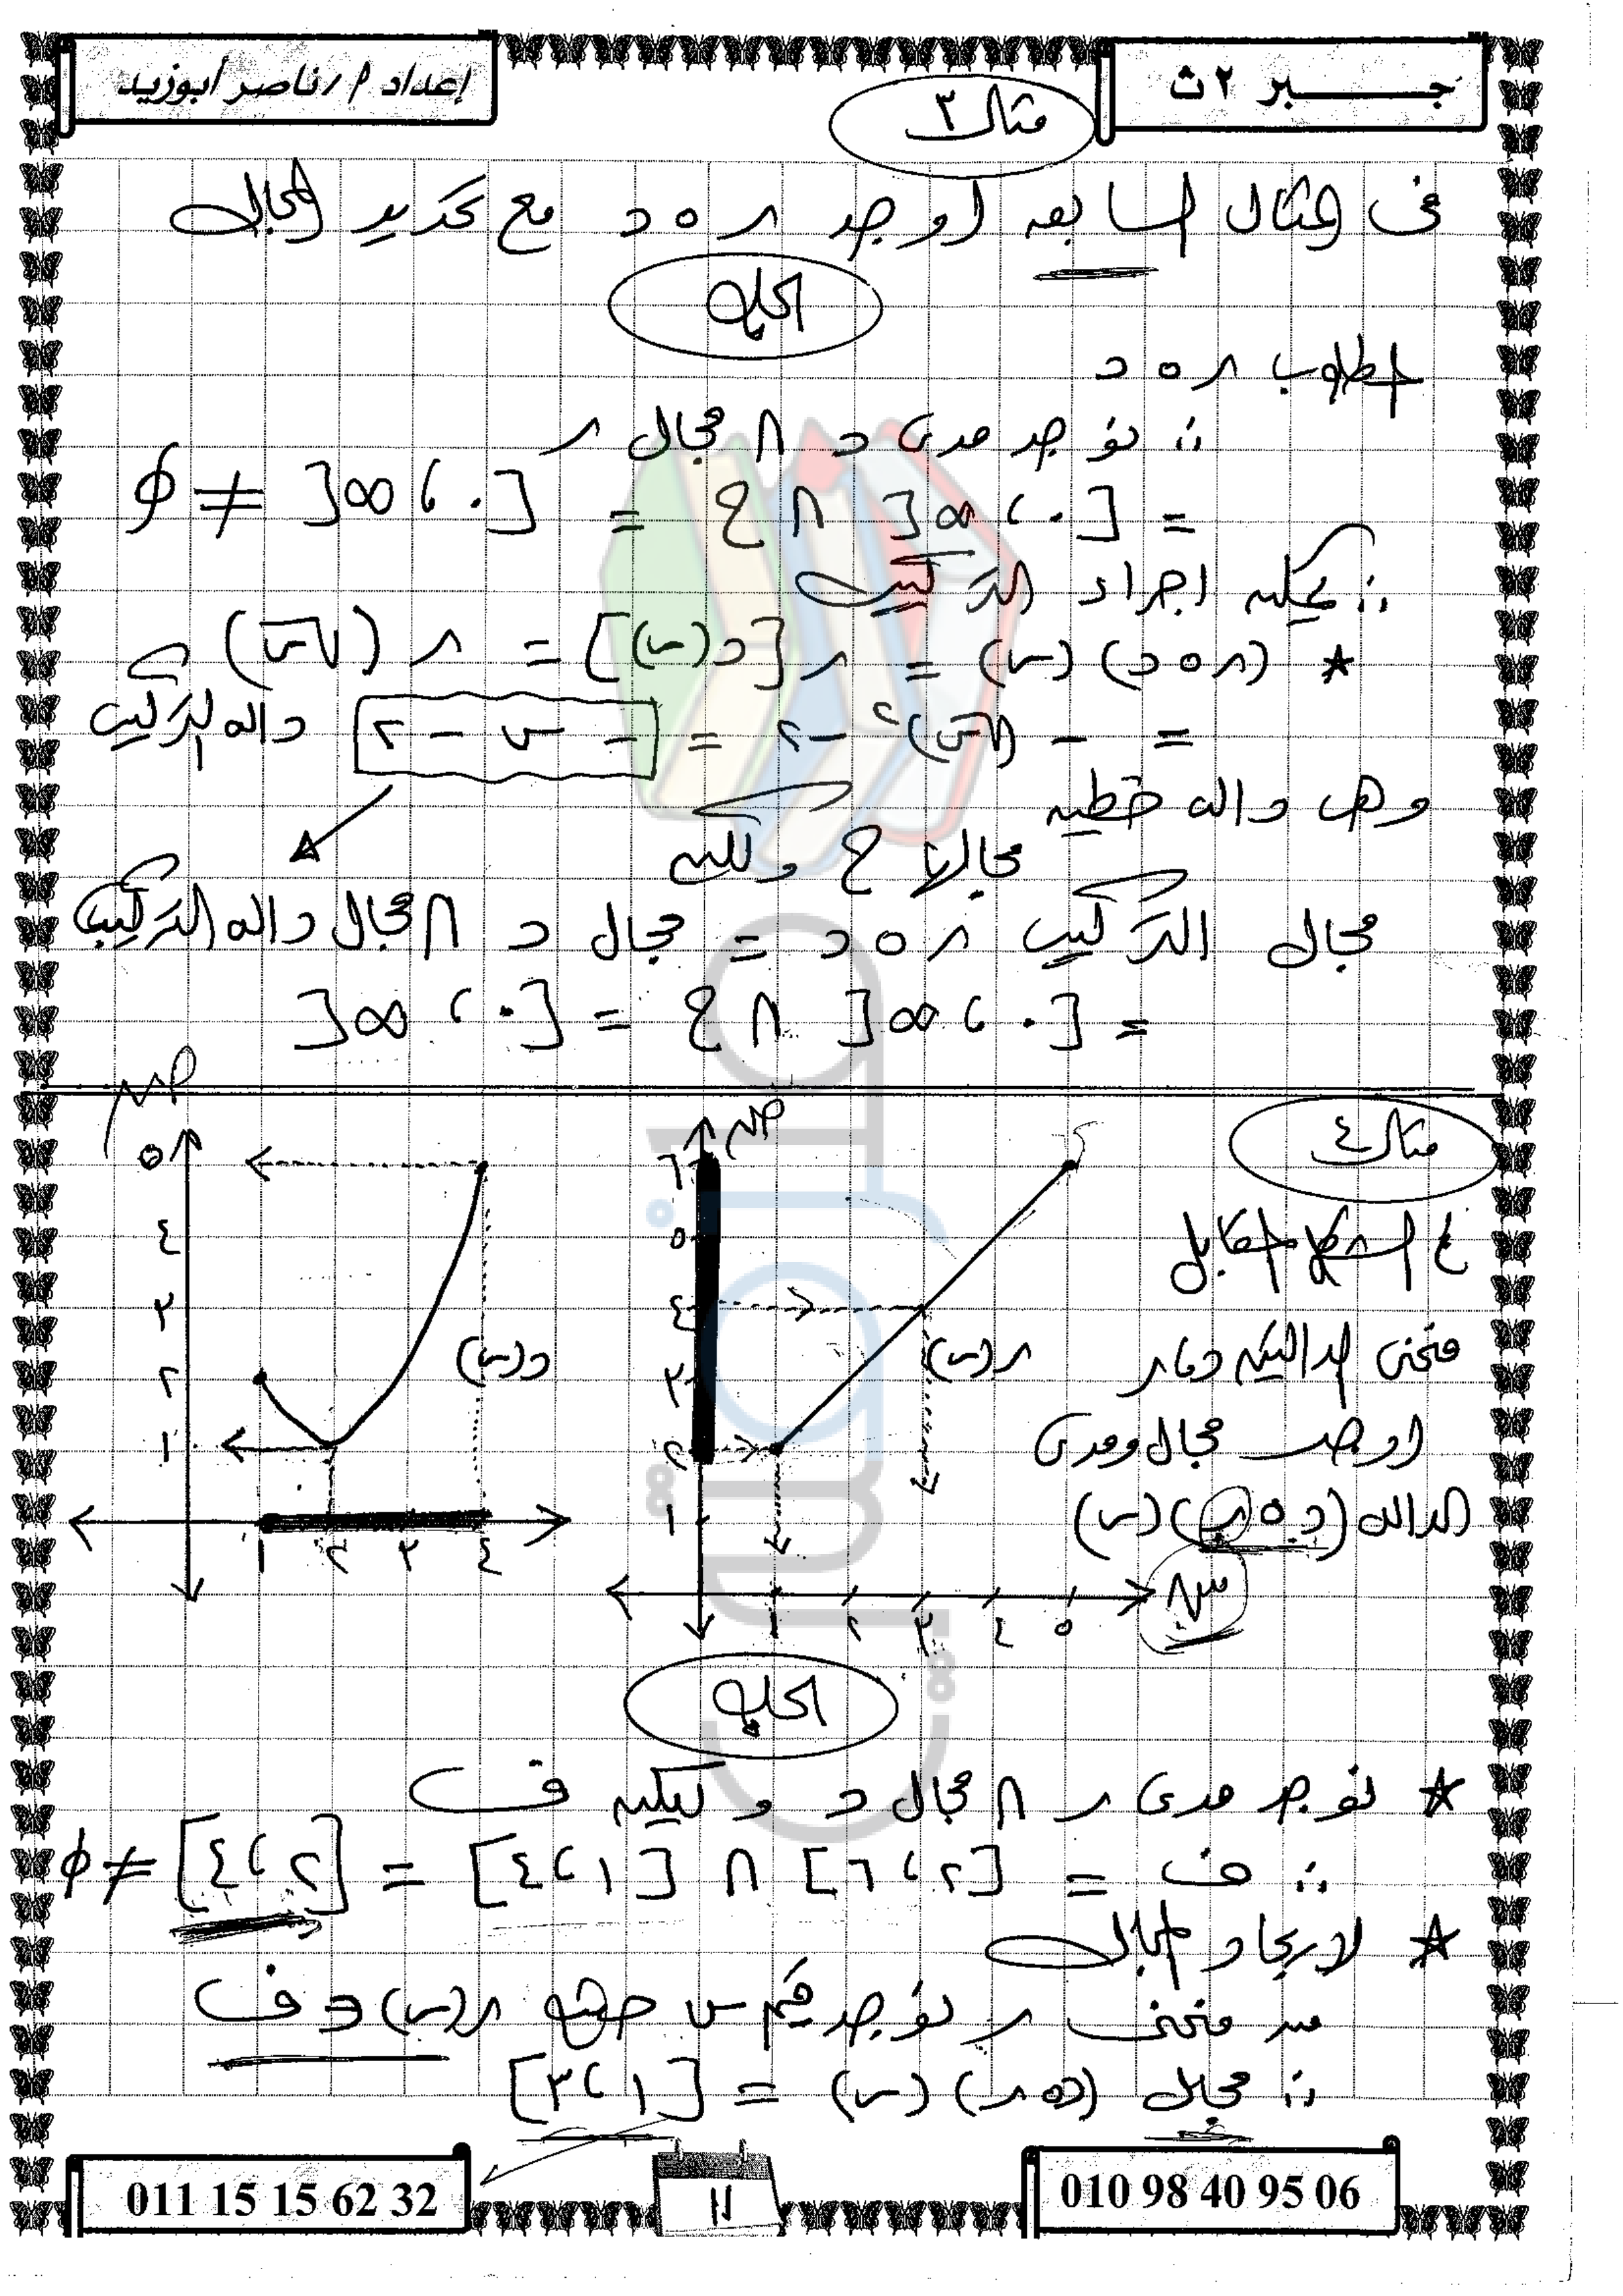 جبر ٢ ث
إعداد أ / ناصر أبوزيد
مثال ٣
فى المثال السابق أوجد ر ه د مع تحديد المجال
الحل
المطلوب ر ه د
∴ نوجد مدى د ∩ مجال ر
= [٠ ، ∞[ ∩ ح = [٠ ، ∞[ ≠ φ
∴ يمكن اجراء التركيب
* (ر ه د) (س) = ر [د(س)] = ر (√س)
= - (√س)² - ٢ = - س - ٢ داله التركيب
وهى داله خطيه
مجالها ح ولكن
مجال التركيب ر ه د = مجال د ∩ مجال داله التركيب
= [٠ ، ∞[ ∩ ح = [٠ ، ∞[
مثال ٤
فى الشكل المقابل
منحنى الدالتين د ، ر
اوجد مجال ومدى
الداله (د ه ر) (س)
ص
٦
٥
٤
٣
٢
١
ر(س)
١ ٢ ٣ ٤ ٥
س
ص
٥
٤
٣
٢
١
د(س)
١ ٢ ٣ ٤
الحل
* نوجد مدى ر ∩ مجال د وليكن ف
∴ ف = [٢ ، ٦] ∩ [١ ، ٤] = [٢ ، ٤] ≠ φ
* لايجاد المجال
من منحنى ر نوجد قيم س حيث ر(س) ∈ ف
∴ مجال (د ه ر) (س) = [١ ، ٣]
010 98 40 95 06
١١
011 15 15 62 32